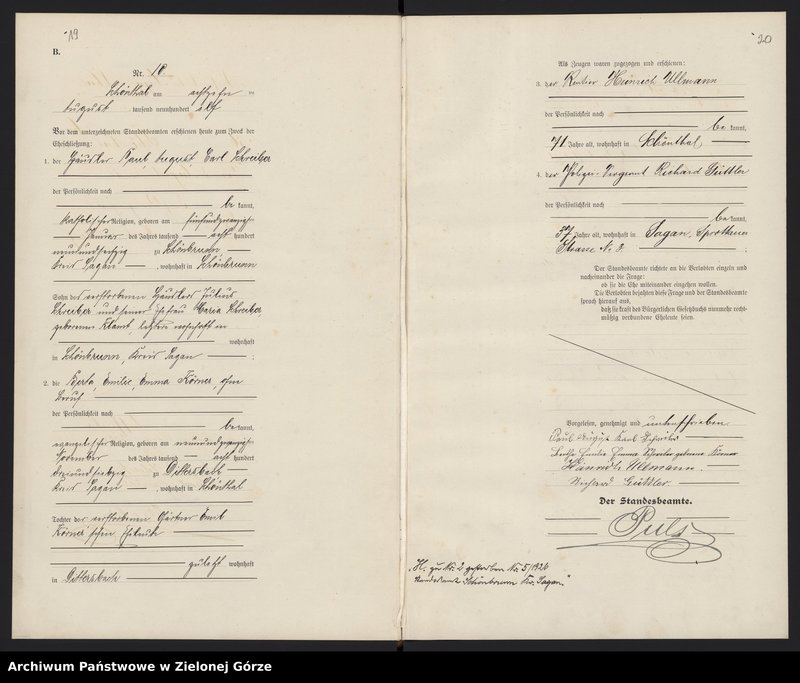 19
B.
Nr. 10.
Schönthal am achtzehn ten
August tausend neunhundert elf
Vor dem unterzeichneten Standesbeamten erschienen heute zum Zweck der
Eheschließung:
1. der Häusler Paul, August, Carl Schreiber
der Persönlichkeit nach
be kannt,
katholischer Religion, geboren am fünfundzwanzig-
Januar des Jahres tausend acht hundert
neunundsechzig zu Schönbrunn
Kreis Sagan, wohnhaft in Schönbrunn
Sohn des verstorbenen Häuslers Julius
Schreiber und seiner Ehefrau Maria Schreiber
geborenen Klamt, letztere
wohnhaft
in Schönbrunn, Kreis Sagan ;
2. die Berta, Emilie, Emma Körner, ohne
Beruf
der Persönlichkeit nach
be kannt,
evangelischer Religion, geboren am neunundzwanzig-
November des Jahres tausend acht hundert
dreiundsiebzig zu Dittersbach
Kreis Sagan, wohnhaft in Schönthal
Tochter der verstorbenen Gärtner Emil
Körner'schen Eheleute
zuletzt wohnhaft
in Dittersbach
20
Als Zeugen waren zugezogen und erschienen:
3. der Rentier Heinrich Ullmann
der Persönlichkeit nach
be kannt,
71 Jahre alt, wohnhaft in Schönthal;
4. der Polizei-Sergeant Richard Güttler
der Persönlichkeit nach
be kannt,
37 Jahre alt, wohnhaft in Sagan, Sprottauer
Strasse No 3. ;
Der Standesbeamte richtete an die Verlobten einzeln und
nacheinander die Frage:
ob sie die Ehe miteinander eingehen wollen.
Die Verlobten bejahten diese Frage und der Standesbeamte
sprach hierauf aus,
daß sie kraft des Bürgerlichen Gesetzbuchs nunmehr recht-
mäßig verbundene Eheleute seien.
Vorgelesen, genehmigt und unterschrieben
Paul August Karl Schreiber
Bertha Emilie Emma Schreiber geborene Körner
Heinrich Ullmann.
Richard Güttler.
Der Standesbeamte.
Puls
„H. zu No. 2 gestorben No. 5/1926
Standesamt Schönbrunn Kr. Sagan."
Archiwum Państwowe w Zielonej Górze